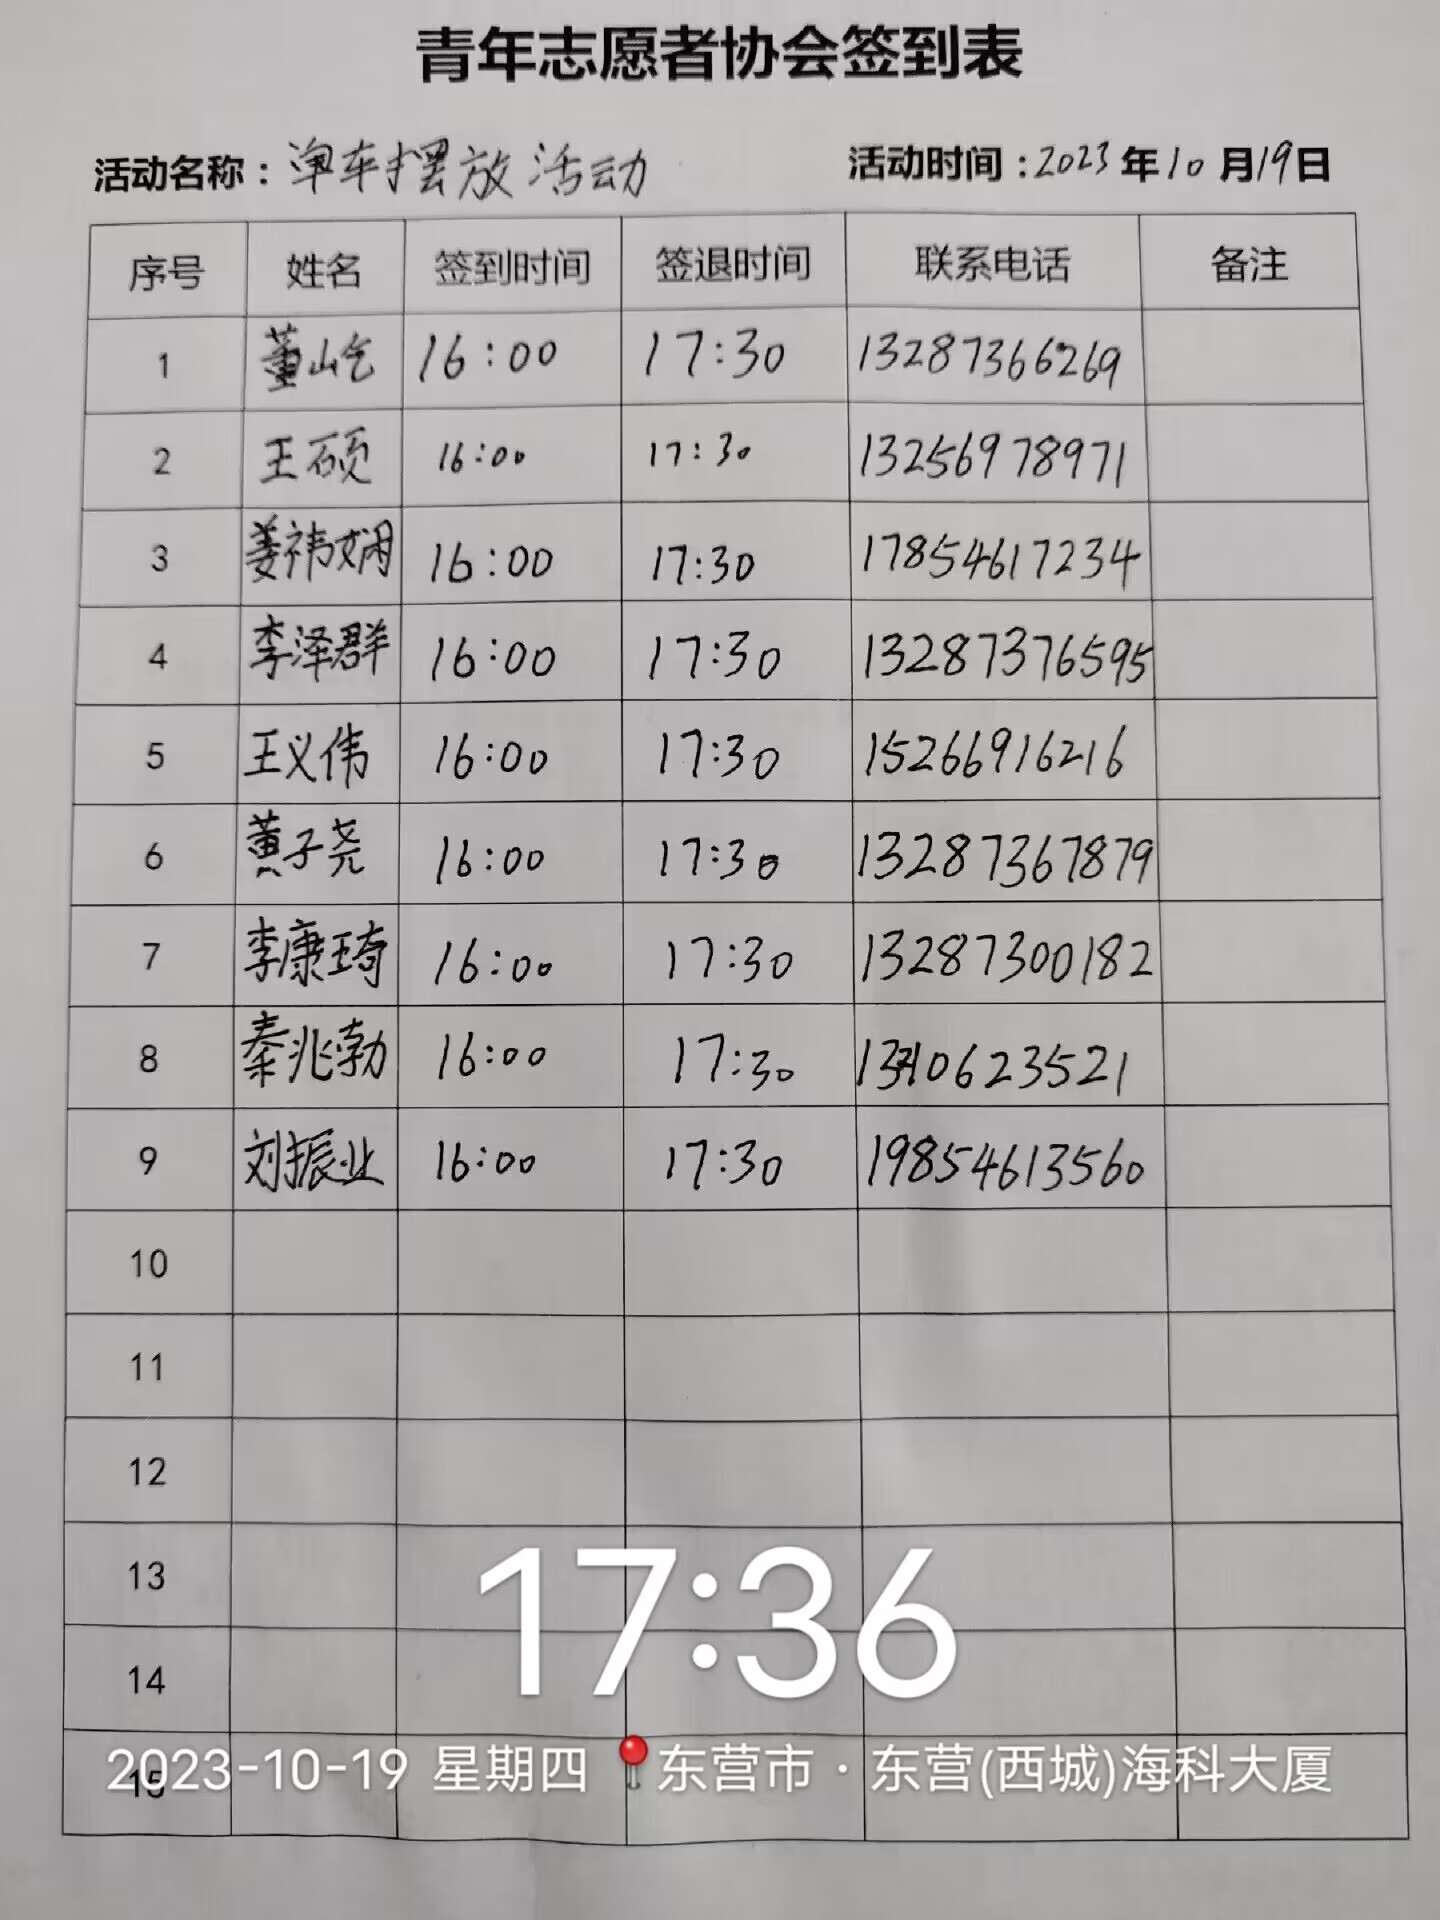 青年志愿者协会签到表
活动名称：单车摆放活动 活动时间：2023年10月19日
序号 姓名 签到时间 签退时间 联系电话 备注
1 董山屹 16:00 17:30 13287366269
2 王硕 16:00 17:30 13256978971
3 姜祎娴 16:00 17:30 17854617234
4 李泽群 16:00 17:30 13287376595
5 王义伟 16:00 17:30 15266916216
6 黄子尧 16:00 17:30 13287367879
7 李康琦 16:00 17:30 13287300182
8 秦兆勃 16:00 17:30
9 刘振业 16:00 17:30 19854613560
10
11
12
13
14
15
17:36
2023-10-19 星期四 东营市·东营(西城)海科大厦